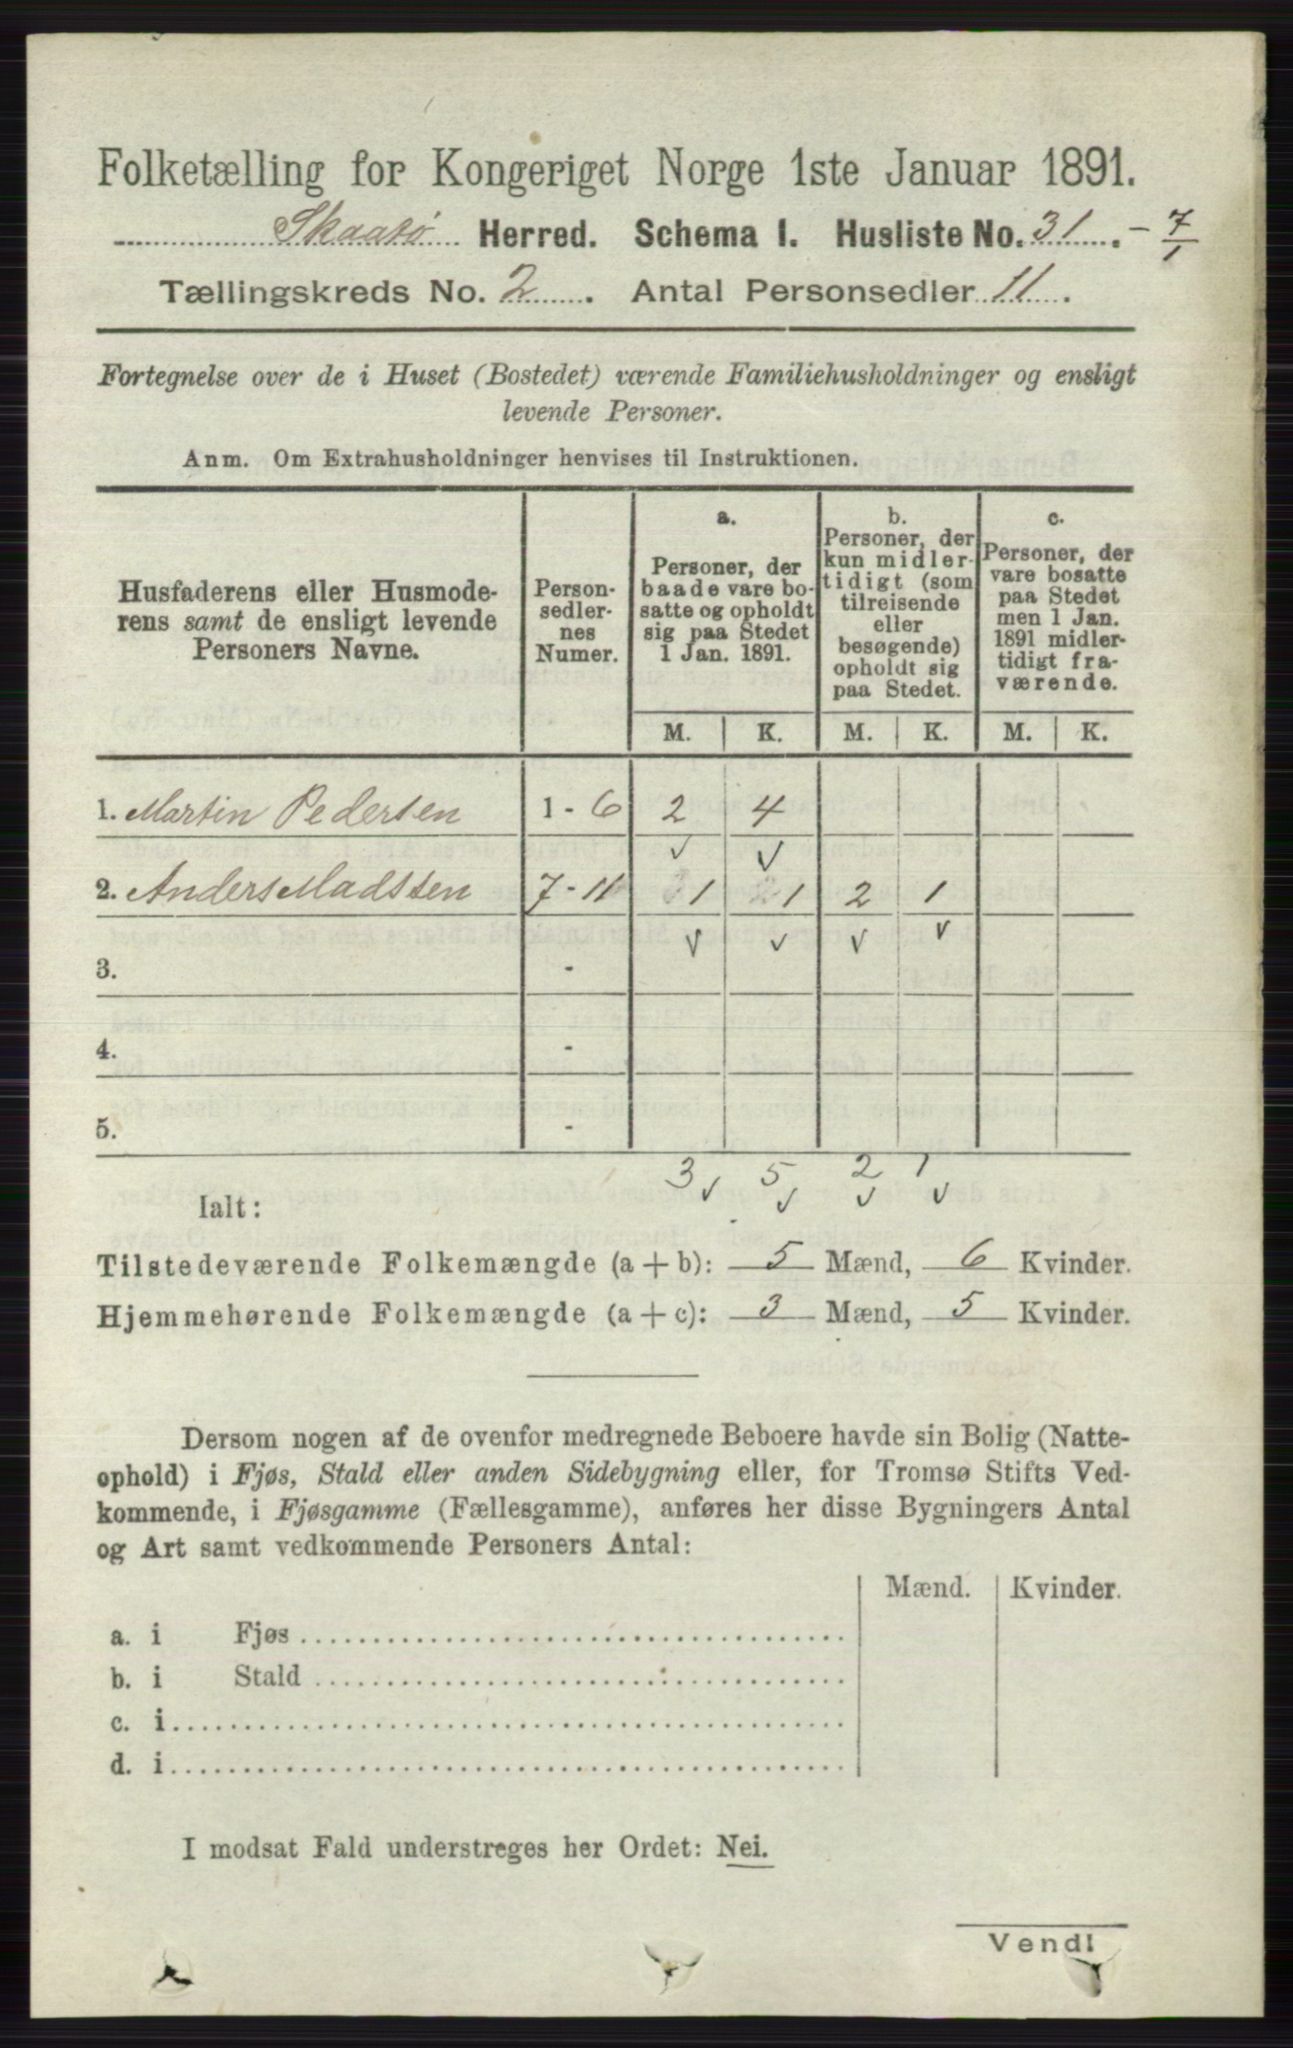 Folketælling for Kongeriget Norge 1ste Januar 1891.
Skaatø Herred. Schema I. Husliste No. 31. - 7/1
Tællingskreds No. 2. Antal Personsedler 11.
Fortegnelse over de i Huset (Bostedet) værende Familiehusholdninger og ensligt
levende Personer.
Anm. Om Extrahusholdninger henvises til Instruktionen.
Husfaderens eller Husmode-
rens samt de ensligt levende
Personers Navne.
Person-
sedler-
nes
Numer.
a.
Personer, der
baade vare bo-
satte og opholdt
sig paa Stedet
1 Jan. 1891.
b.
Personer, der
kun midler-
tidigt (som
tilreisende
eller
besøgende)
opholdt sig
paa Stedet.
c.
Personer, der
vare bosatte
paa Stedet
men 1 Jan.
1891 midler-
tidigt fra-
værende.
M. K. M. K. M. K.
1. Martin Pedersen 1 - 6 2 4
v v
2. Anders Madssen 7 - 11 1 1 2 1
v v v v
3. -
4. -
5. -
3 v 5 v 2 v 1 v
Ialt:
Tilstedeværende Folkemængde (a + b): 5 Mænd, 6 Kvinder.
Hjemmehørende Folkemængde (a + c): 3 Mænd, 5 Kvinder.
Dersom nogen af de ovenfor medregnede Beboere havde sin Bolig (Natte-
ophold) i Fjøs, Stald eller anden Sidebygning eller, for Tromsø Stifts Ved-
kommende, i Fjøsgamme (Fællesgamme), anføres her disse Bygningers Antal
og Art samt vedkommende Personers Antal:
Mænd. Kvinder.
a. i Fjøs
b. i Stald
c. i
d. i
I modsat Fald understreges her Ordet: Nei.
Vend!